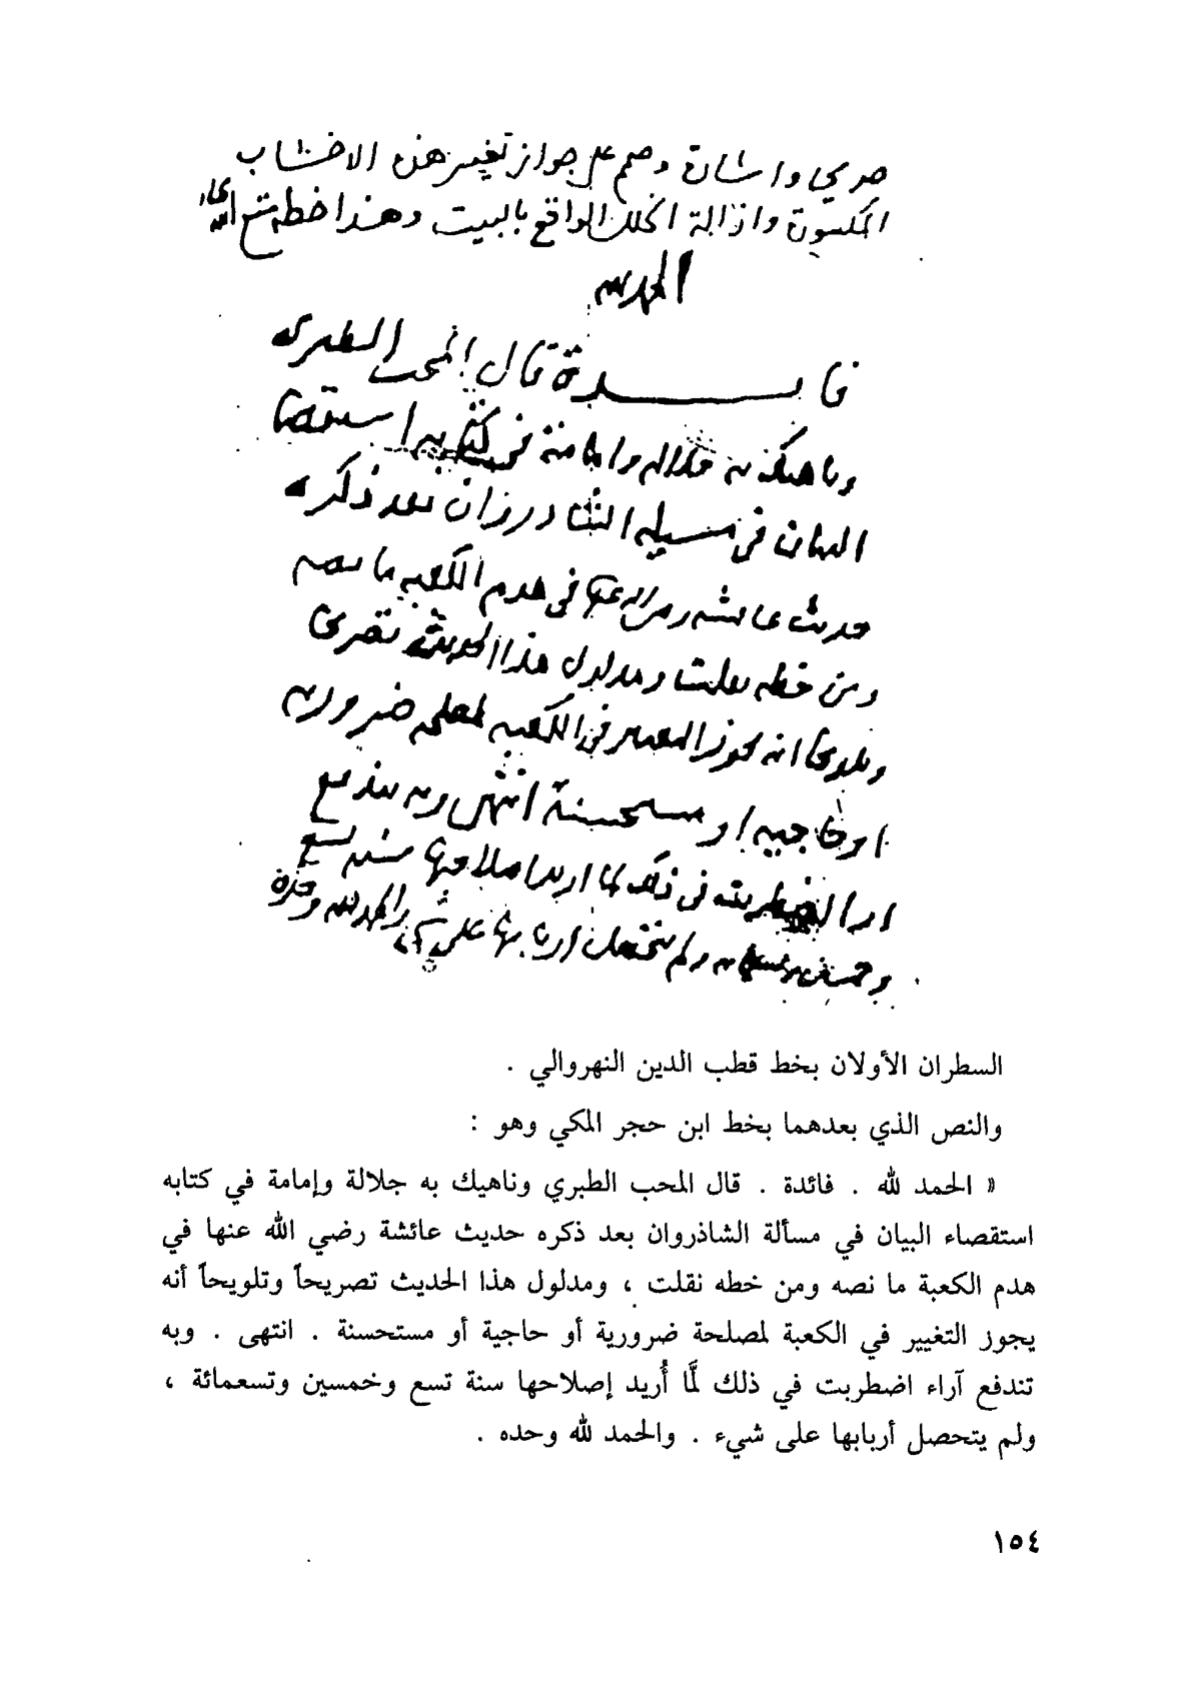 صريحا واشارة وصمم على جواز تغيير هذه الاخشاب
المكسورة وازالة الخلل الواقع بالبيت وهذا خطه متع الله
الحمد لله
فايدة قال المحب الطبري
وناهيك به جلالة وامامة في كتابه استقصا
البيان في مسيلة الشادروان بعد ذكره
حديث عائشه رضي الله عنها في هدم الكعبه ما نصه
ومن خطه نقلت ومدلول هذا الحديث تصريحا
وتلويحا انه يجوز التغيير في الكعبه لمصلحه ضروريه
او حاجيه او مستحسنة انتهى وبه يندفع
ارا اضطربت في ذلك لما اريد اصلاحها سنه تسع
وخمسين وتسعمايه ولم يتحصل اربابها على شي والحمد لله وحده
السطران الأولان بخط قطب الدين النهروالي .
والنص الذي بعدهما بخط ابن حجر المكي وهو :
« الحمد لله . فائدة . قال المحب الطبري وناهيك به جلالة وإمامة في كتابه
استقصاء البيان في مسألة الشاذروان بعد ذكره حديث عائشة رضي الله عنها في
هدم الكعبة ما نصه ومن خطه نقلت ، ومدلول هذا الحديث تصريحاً وتلويحاً أنه
يجوز التغيير في الكعبة لمصلحة ضرورية أو حاجية أو مستحسنة . انتهى . وبه
تندفع آراء اضطربت في ذلك لمَّا أُريد إصلاحها سنة تسع وخمسين وتسعمائة ،
ولم يتحصل أربابها على شيء . والحمد لله وحده .
١٥٤